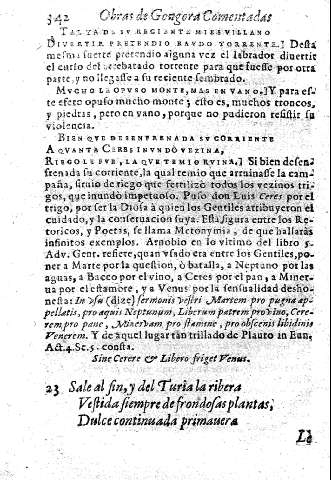 342 Obras de Gongora Comentadas
TAL YA DE SV RECIENTE MIES VILLANO
DIVERTIR PRETENDIO RAVDO TORRENTE.] Desta
mesma suerte pretendio alguna vez el labrador diuertir
el curso del arrebatado torrente para que fuesse por otra
parte, y no llegasse a su reciente sembrado.
MVCHO LE OPVSO MONTE, MAS EN VANO.] Y para es-
te efeto opuso mucho monte; esto es, muchos troncos,
y piedras, pero en vano, porque no pudieron resistir su
violencia.
BIEN QVE DESENFRENADA SV CORRIENTE
A QVANTA CERES INVNDÒ VEZINA,
RIEGO LE FVE, LA QVE TEMIO RVINA.] Si bien desen-
frenada su corriente, la qual temio que arruinasse la cam-
paña, siruio de riego que fertilizò todos los vezinos tri-
gos, que inundò impetuoso. Puso don Luis Ceres por el
trigo, por ser la Diosa à quien los Gentiles atribuyeron el
cuidado, y la conseruacion suya. Esta figura entre los Re-
toricos, y Poetas, se llama Metonymia, de que hallaràs
infinitos exemplos. Arnobio en lo vltimo del libro 5.
Adv. Gent. refiere, quan vsado era entre los Gentiles, po-
ner a Marte por la question, ò batalla, a Neptuno por las
aguas, a Bacco por el vino, a Ceres por el pan, a Miner-
ua por el estambre, y a Venus por la sensualidad desho-
nesta: In vsu (dize) sermonis vestri Martem pro pugna ap-
pellatis, pro aquis Neptunum, Liberum patrem pro vino, Cere-
rem pro pane, Minervam pro stamine, pro obscenis libidinis
Venerem. Y de aquel lugar tan trillado de Plauto in Eun,
Act. 4. Sc. 5. consta.
Sine Cerere & Libero friget Venus.
23 Sale al fin, y del Turia la ribera
Vestida siempre de frondosas plantas,
Dulce continuada primauera
Le